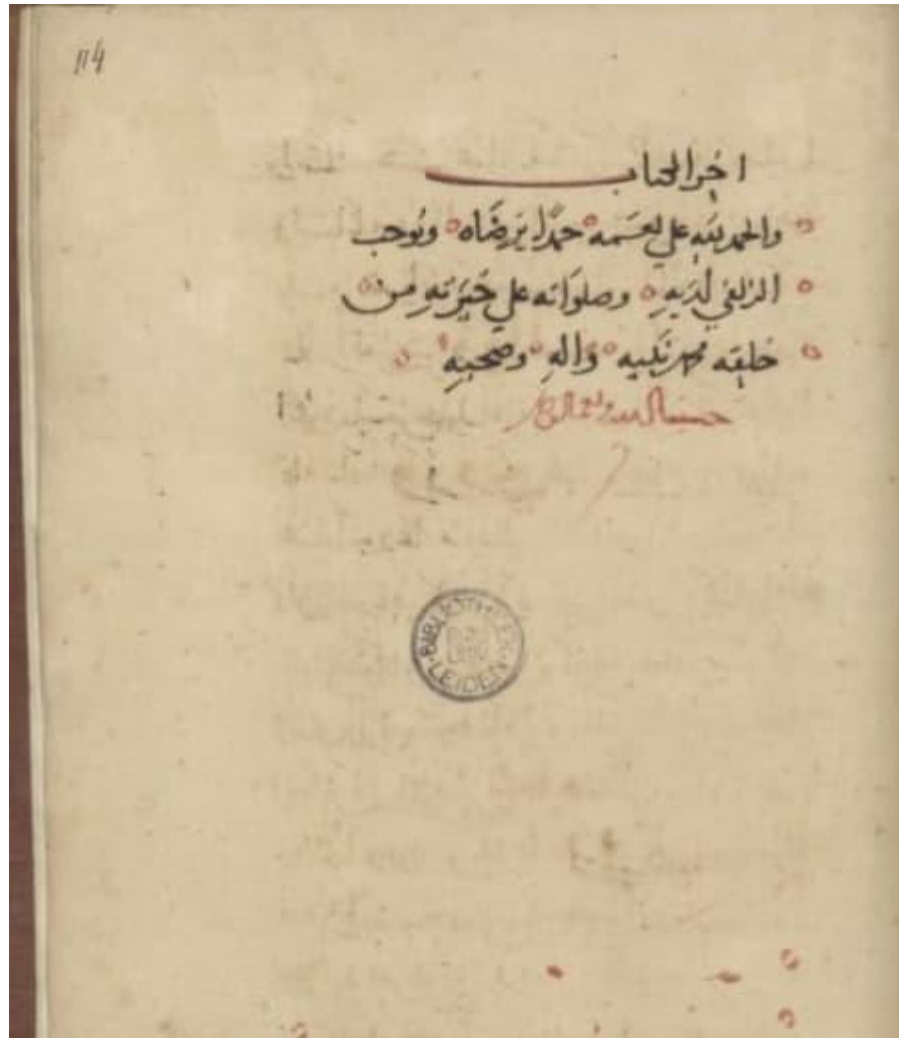 114
اخر الكتاب
والحمد لله على نعمه حمدًا يرضاه ويُوجب
الزلفى لديهِ وصلوَاته على خيَرتهِ من
خلقه محمد نَبيه وَالهِ وصحبهِ
حسبنا الله تعالى
BIBLIOTHEEK
LEIDEN